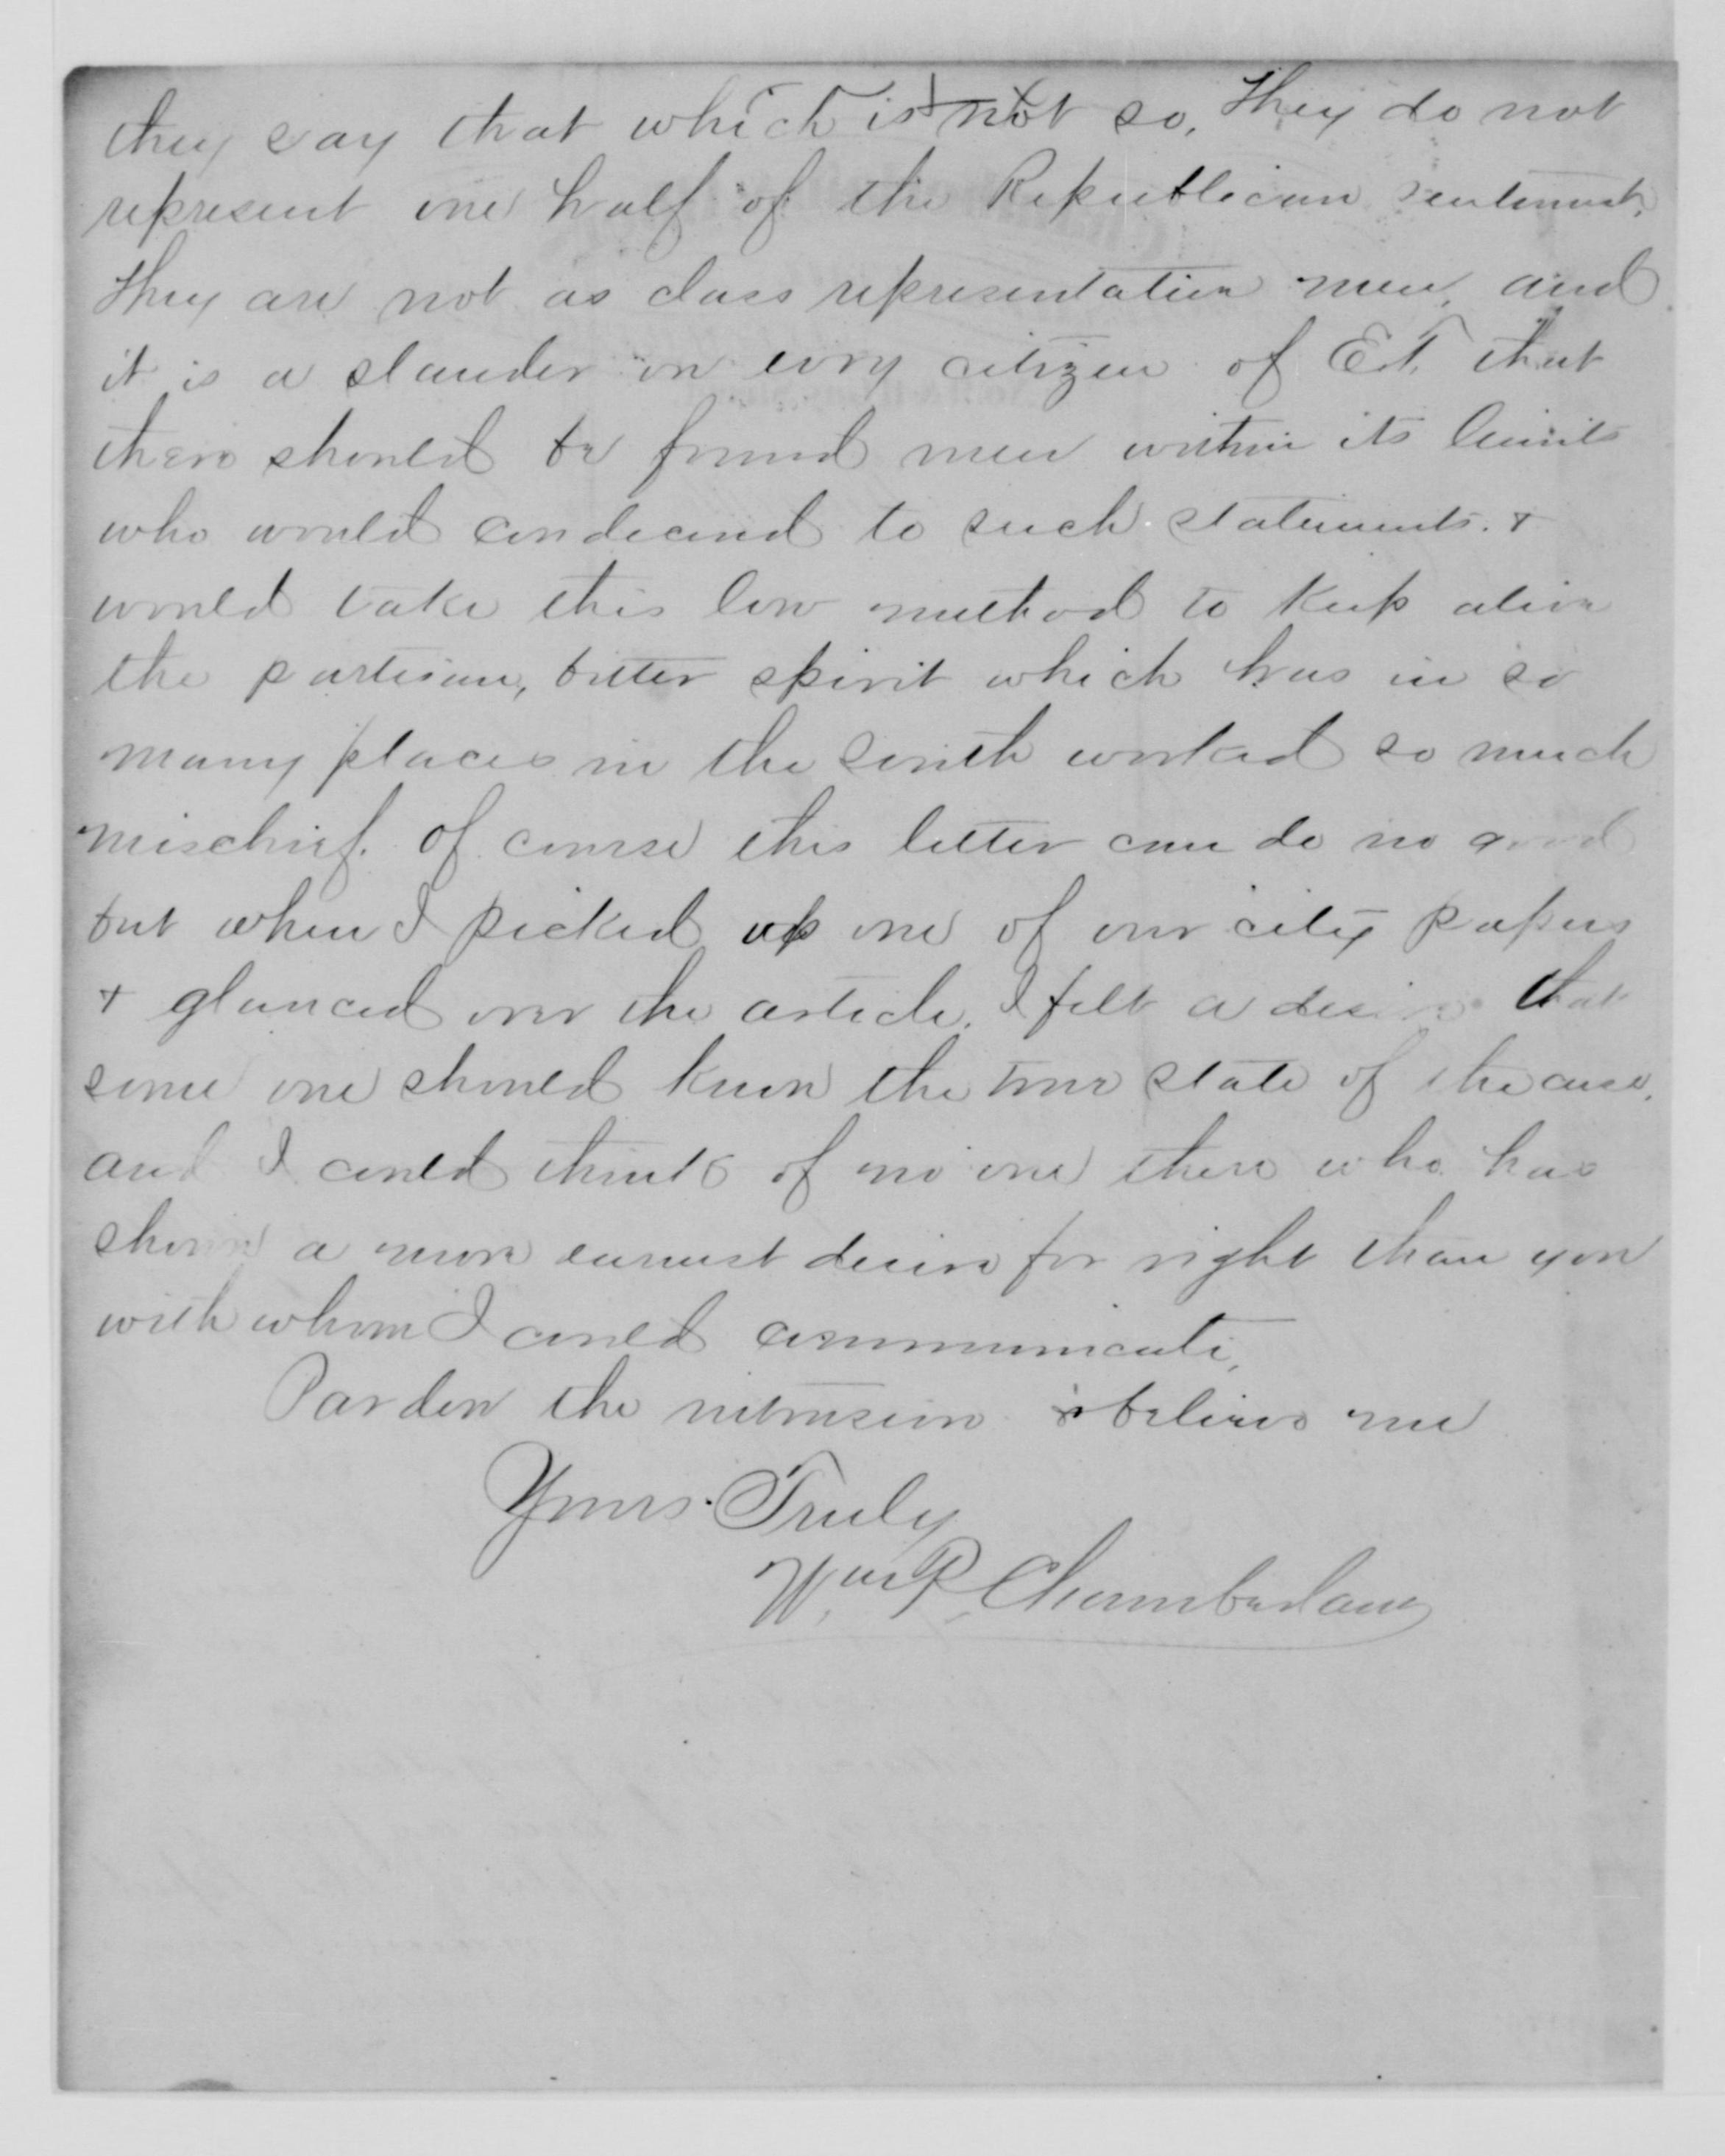 they say that which is not so. They do not
represent one half of the Republican sentiment.
They are not as class representation men, and
it is a slander on every citizen of E.T. that
there should be found men within its limits
who would condecend to such statements. +
would take this low method to keep alive
the partisan, bitter spirit which has in so
many places in the South worked so much
mischief. Of course this letter can do no good
but when I picked up one of our city papers
+ glanced over the article. I felt a desire that
some one should know the true state of the case,
and I could think of no one there who has
shown a more earnest desire for right than you
with whom I could communicate.
Pardon the intrusion + believe me
Yours Truly
Wm P. Chamberlain